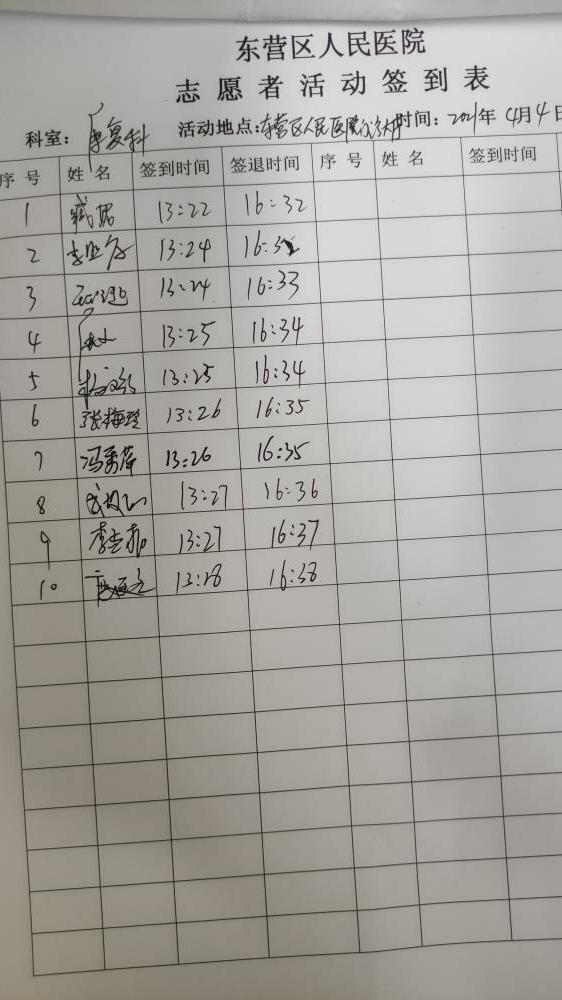 东营区人民医院
志愿者活动签到表
科室：康复科 活动地点：东营区人民医院 时间：2021年4月4日
序号 姓名 签到时间 签退时间 序号 姓名 签到时间
1 13:22 16:32
2 13:24 16:32
3 13:24 16:33
4 13:25 16:34
5 13:25 16:34
6 张梅玲 13:26 16:35
7 冯秀萍 13:26 16:35
8 13:27 16:36
9 13:27 16:37
10 13:28 16:38